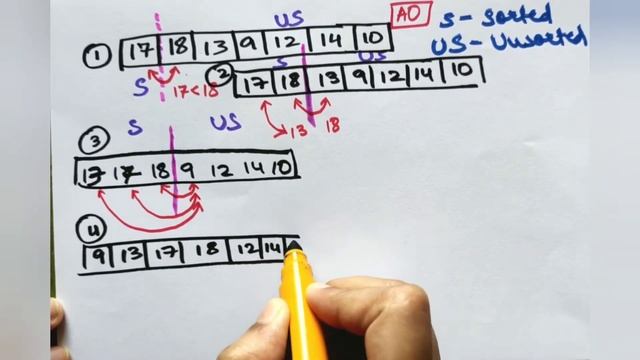 US
AO
S - Sorted
US - Unsorted
1 17 18 13 9 12 14 10
S 17<18
S US
2 17 18 13 9 12 14 10
13 18
S US
3 13 17 18 9 12 14 10
4 9 13 17 18 12 14